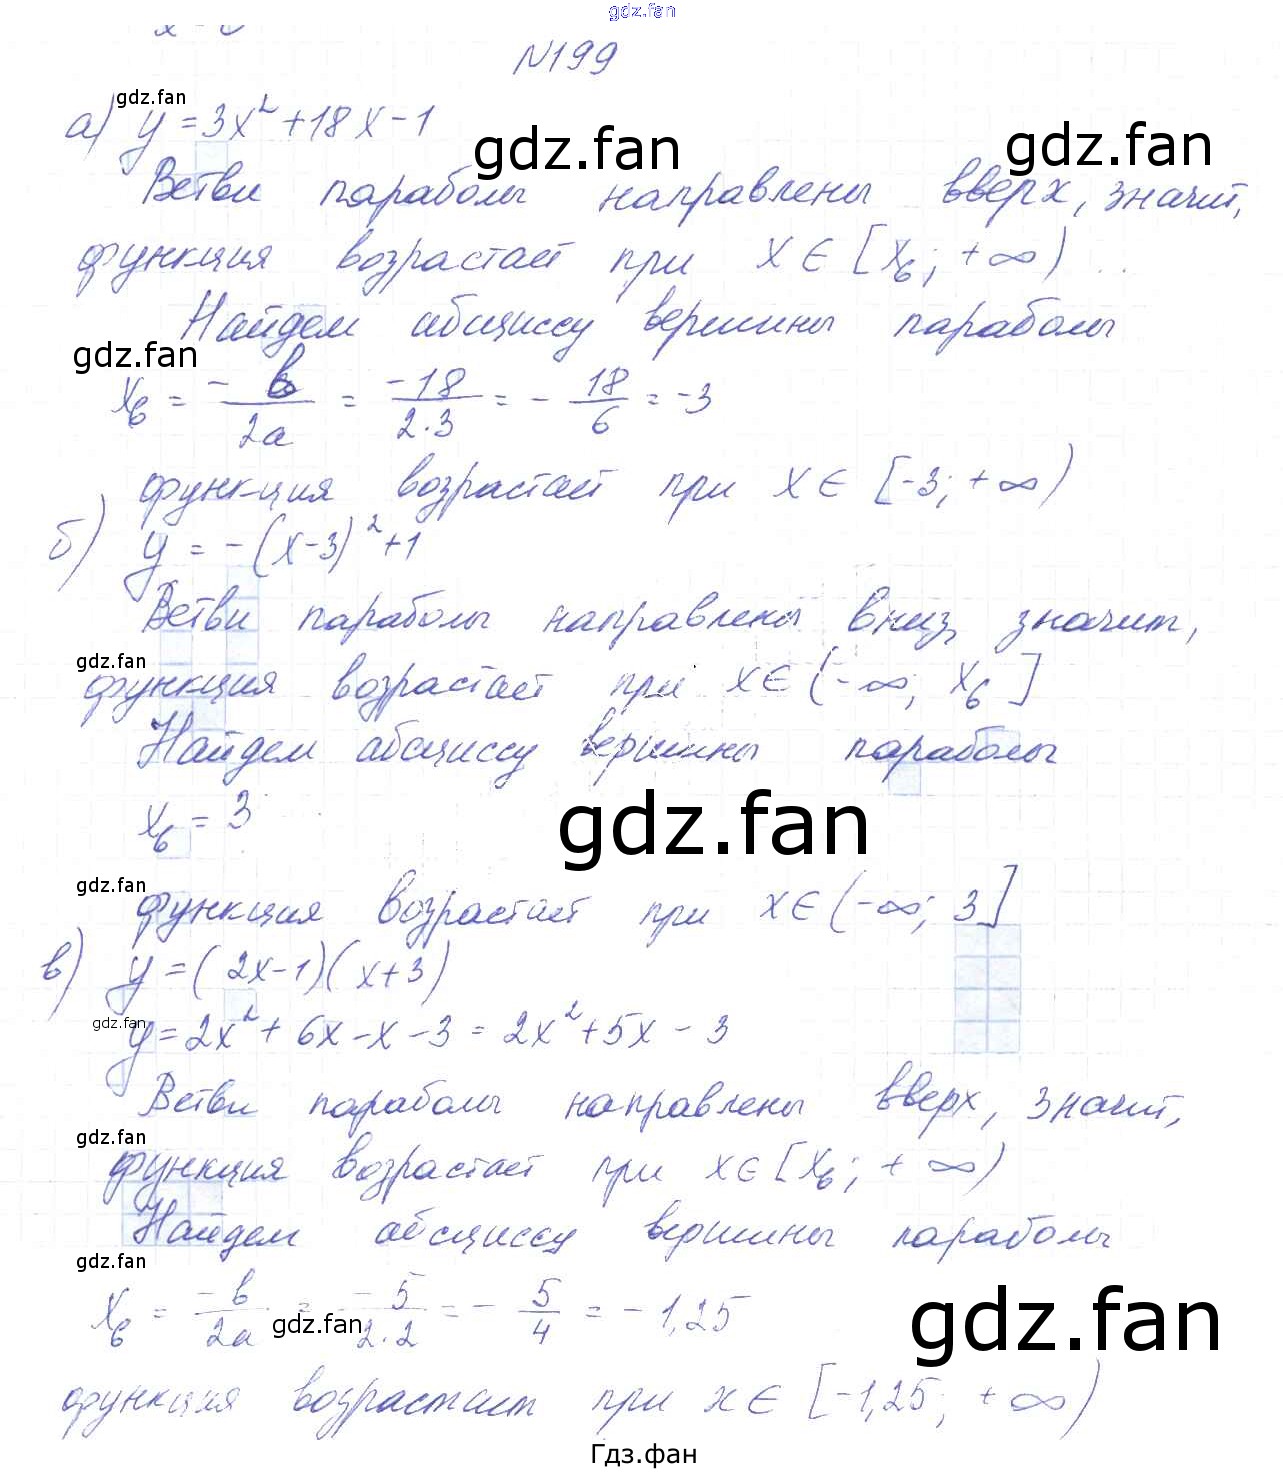 gdz.fan
N199
gdz.fan
а) y = 3x² + 18x - 1
gdz.fan
gdz.fan
Ветви параболы направлены вверх, значит,
функция возрастает при x ∈ [xв; +∞)
Найдем абсциссу вершины параболы
gdz.fan
xв = -b/2a = -18/2·3 = -18/6 = -3
функция возрастает при x ∈ [-3; +∞)
б) y = -(x-3)² + 1
Ветви параболы направлены вниз, значит,
gdz.fan
функция возрастает при x ∈ (-∞; xв]
Найдем абсциссу вершины параболы
xв = 3
gdz.fan
gdz.fan
функция возрастает при x ∈ (-∞; 3]
в) y = (2x-1)(x+3)
gdz.fan
y = 2x² + 6x - x - 3 = 2x² + 5x - 3
Ветви параболы направлены вверх, значит,
gdz.fan
функция возрастает при x ∈ [xв; +∞)
Найдем абсциссу вершины параболы
gdz.fan
xв = -b/2a = -5/2·2 = -5/4 = -1,25
gdz.fan
gdz.fan
функция возрастает при x ∈ [-1,25; +∞)
Гдз.фан